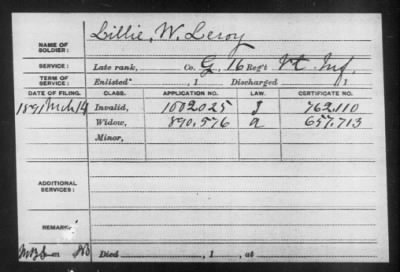 Lillie, W. Leroy
NAME OF SOLDIER:
SERVICE: Late rank, Co. G, 16 Reg't Vt. Inf.
TERM OF SERVICE: Enlisted , 1 Discharged , 1
DATE OF FILING. CLASS. APPLICATION NO. LAW. CERTIFICATE NO.
1891 Mch 14 Invalid, 1002025 762.110
Widow, 890.576 a 657.713
Minor,
ADDITIONAL SERVICES:
REMARKS:
Died , 1 , at